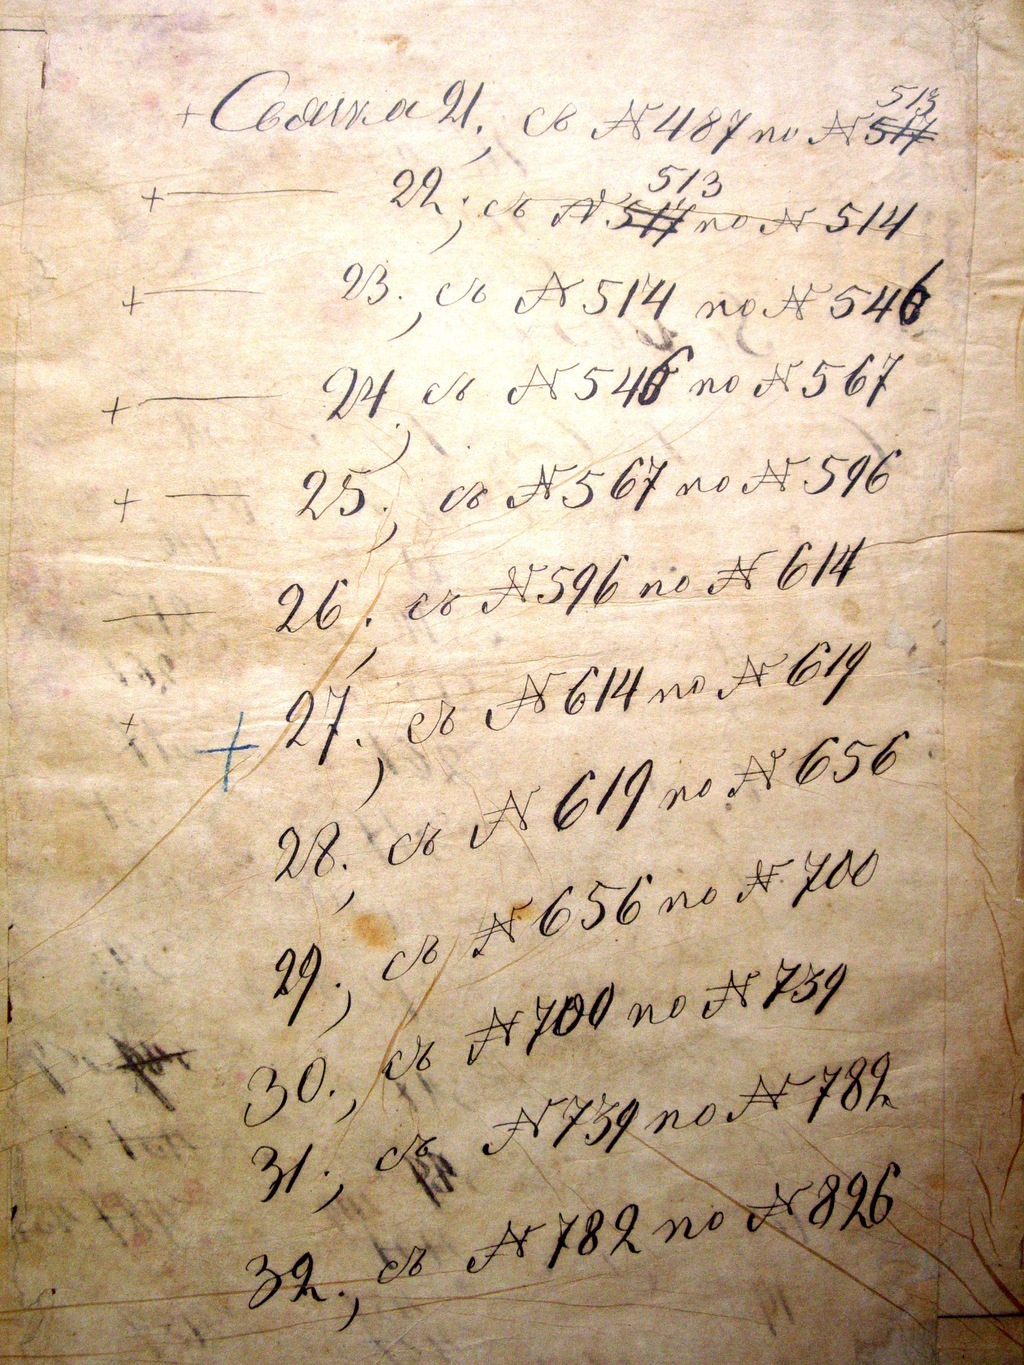 + Связка 21, съ № 487 по № 513 517
+ 22, съ № 513 517 по № 514
+ 23, съ № 514 по № 546
+ 24, съ № 546 по № 567
+ 25, съ № 567 по № 596
26, съ № 596 по № 614
+ 27, съ № 614 по № 619
28, съ № 619 по № 656
29, съ № 656 по № 700
30, съ № 700 по № 739
31, съ № 739 по № 782
32, съ № 782 по № 826